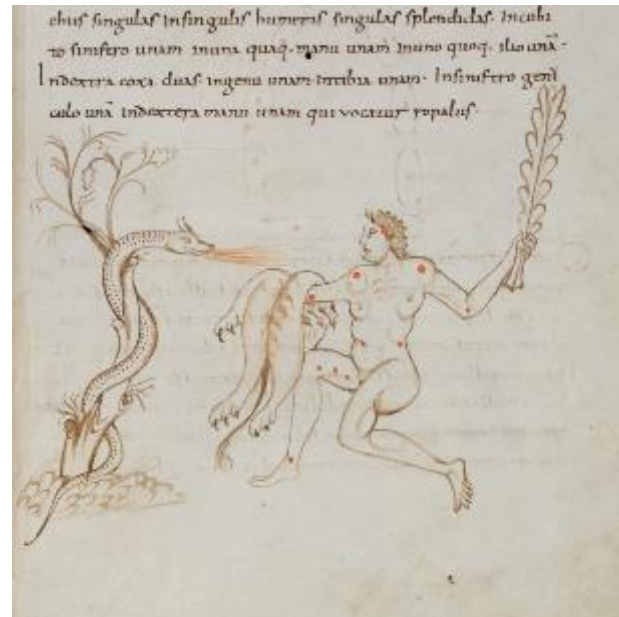 chus singulas Insingulis humeris singulas splendidas. Incubi
to sinistro unam inuna quaq. manu unam Inuno quoq. ilio unā.
Indextra coxa duas ingenu unam intibia unam. Insinistro geni
culo unā Indextera manu unam qui vocatur ropalus.